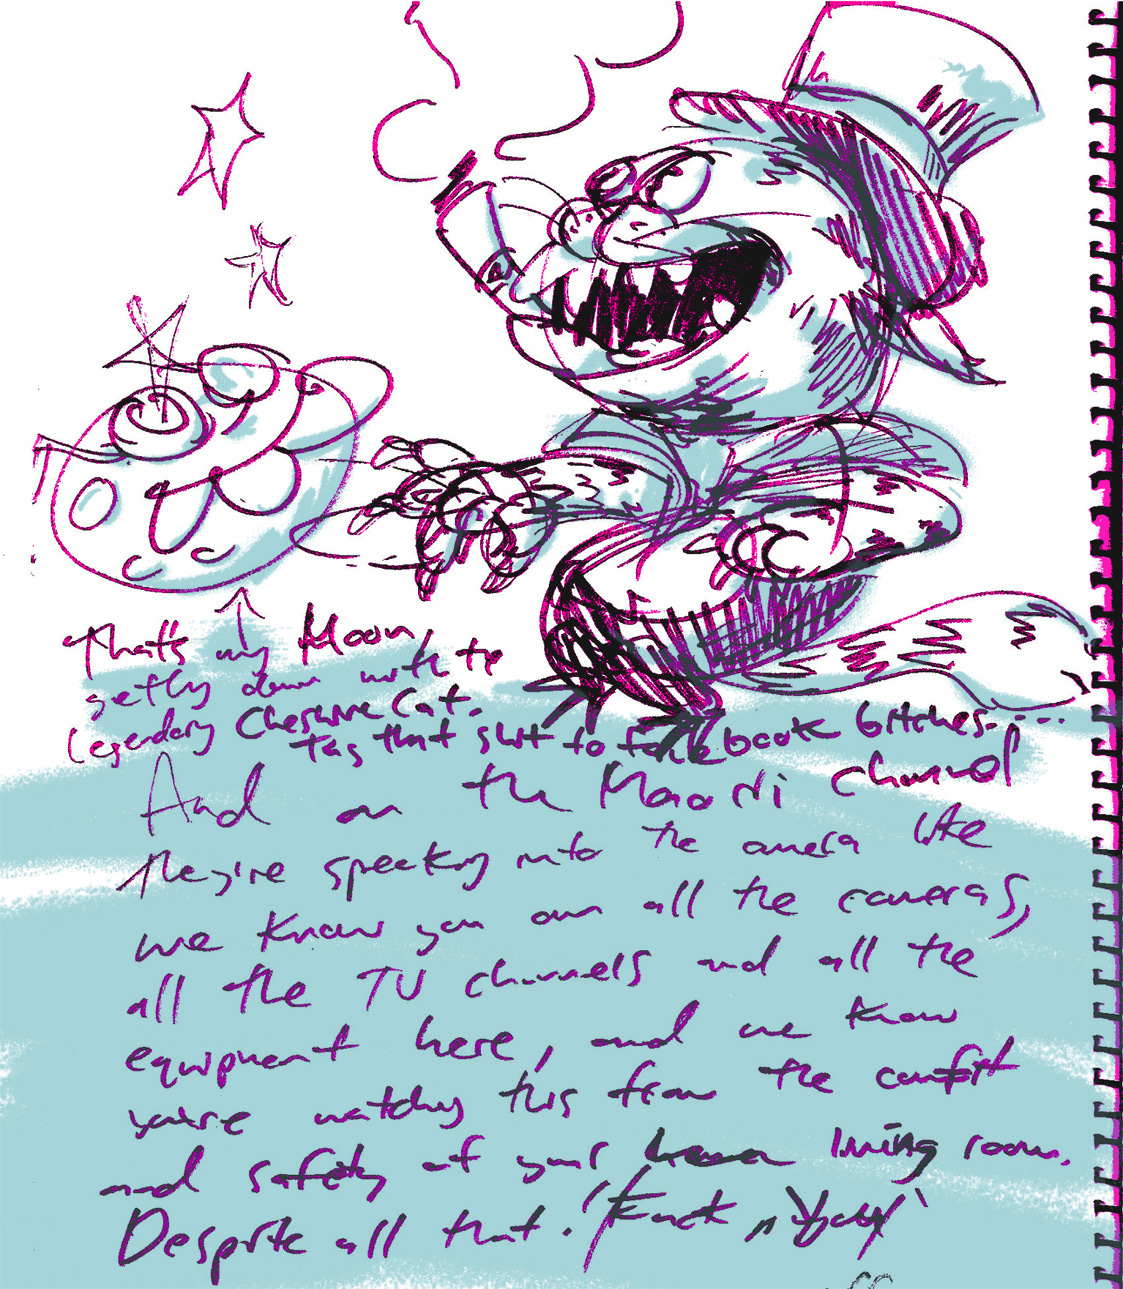 That's my Moon
getting down with the
legendary Cheshire Cat.
tag that shit to facebook bitches.....
And on the Maori channel
they're speaking into the camera like
we know you own all the cameras,
all the TV channels and all the
equipment here, and we know
you're watching this from the comfort
and safety of your living room.
Despite all that. 'Fuck